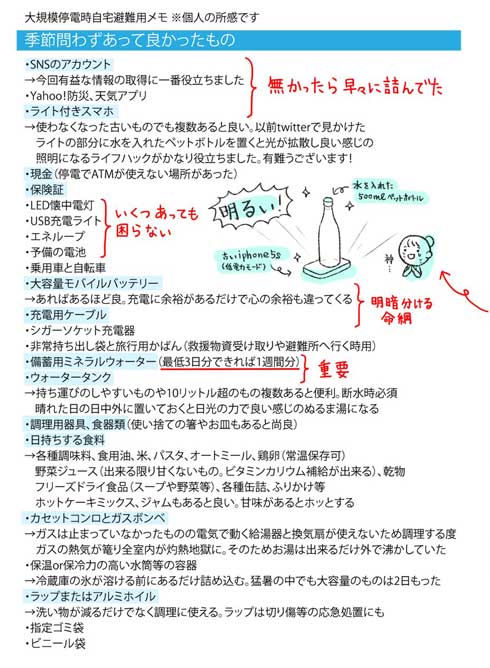 大規模停電時自宅避難用メモ ※個人の所感です
季節問わずあって良かったもの
・SNSのアカウント
→今回有益な情報の取得に一番役立ちました
・Yahoo!防災、天気アプリ
無かったら早々に詰んでた
・ライト付きスマホ
→使わなくなった古いものでも複数あると良い。以前twitterで見かけた
ライトの部分に水を入れたペットボトルを置くと光が拡散し良い感じの
照明になるライフハックがかなり役立ちました。有難うございます!
・現金(停電でATMが使えない場所があった)
・保険証
・LED懐中電灯
・USB充電ライト
・エネループ
・予備の電池
いくつあっても
困らない
明るい!
水を入れた
500mlペットボトル
古いiphone5s
(低電力モード)
神…
・乗用車と自転車
・大容量モバイルバッテリー
→あればあるほど良。充電に余裕があるだけで心の余裕も違ってくる
・充電用ケーブル
明暗分ける
命綱
・シガーソケット充電器
・非常持ち出し袋と旅行用かばん(救援物資受け取りや避難所へ行く時用)
・備蓄用ミネラルウォーター(最低3日分できれば1週間分)
・ウォータータンク
重要
→持ち運びのしやすいものや10リットル超のもの複数あると便利。断水時必須
晴れた日の日中外に置いておくと日光の力で良い感じのぬるま湯になる
・調理用器具、食器類(使い捨ての箸やお皿もあると尚良)
・日持ちする食料
→各種調味料、食用油、米、パスタ、オートミール、鶏卵(常温保存可)
野菜ジュース(出来る限り甘くないもの。ビタミンカリウム補給が出来る)、乾物
フリーズドライ食品(スープや野菜等)、各種缶詰、ふりかけ等
ホットケーキミックス、ジャムもあると良い。甘味があるとホッとする
・カセットコンロとガスボンベ
→ガスは止まっていなかったものの電気で動く給湯器と換気扇が使えないため調理する度
ガスの熱気が篭り全室内が灼熱地獄に。そのためお湯は出来るだけ外で沸かしていた
・保温or保冷力の高い水筒等の容器
→冷蔵庫の氷が溶ける前にあるだけ詰め込む。猛暑の中でも大容量のものは2日もった
・ラップまたはアルミホイル
→洗い物が減るだけでなく調理に使える。ラップは切り傷等の応急処置にも
・指定ゴミ袋
・ビニール袋